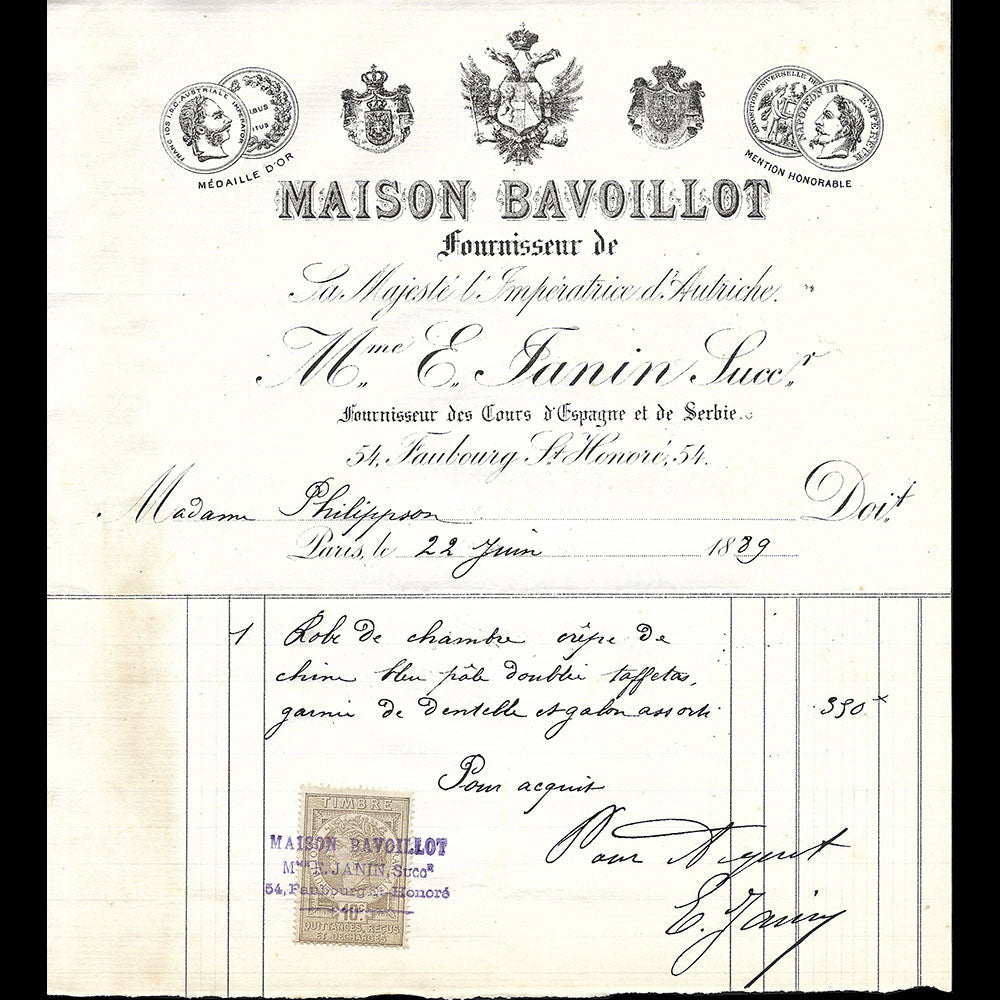 FRANC·IOS·I·D·G·AUSTRIALE IMPERATOR
MÉDAILLE D'OR
EXPOSITION UNIVERSELLE DE
NAPOLEON III EMPEREUR
MENTION HONORABLE
MAISON BAVOILLOT
Fournisseur de
Sa Majesté l'Impératrice d'Autriche.
Mme E. Janin Succr
Fournisseur des Cours d'Espagne et de Serbie.
54, Faubourg St Honoré, 54.
Madame Philippson Doit
Paris, le 22 Juin 1889
1 Robe de chambre crêpe de
chine bleu pâle doublée taffetas,
garnie de dentelle et galon assorti 350
Pour acquit
E. Janin
TIMBRE
MAISON BAVOILLOT
Mme E. JANIN, Succr
54, Faubourg St Honoré
10c
QUITTANCES, REÇUS
ET DÉCHARGES